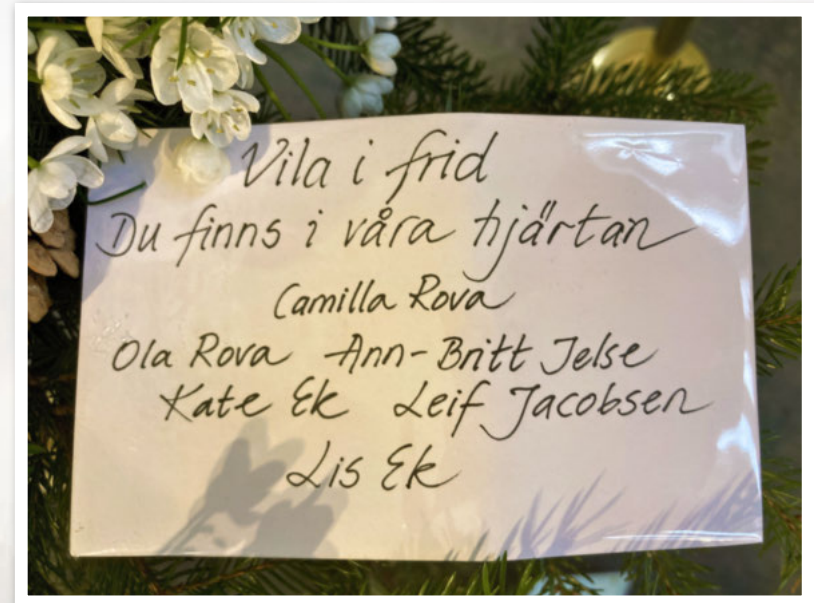 Vila i frid
Du finns i våra hjärtan
Camilla Rova
Ola Rova Ann-Britt Jelse
Kate Ek Leif Jacobsen
Lis Ek